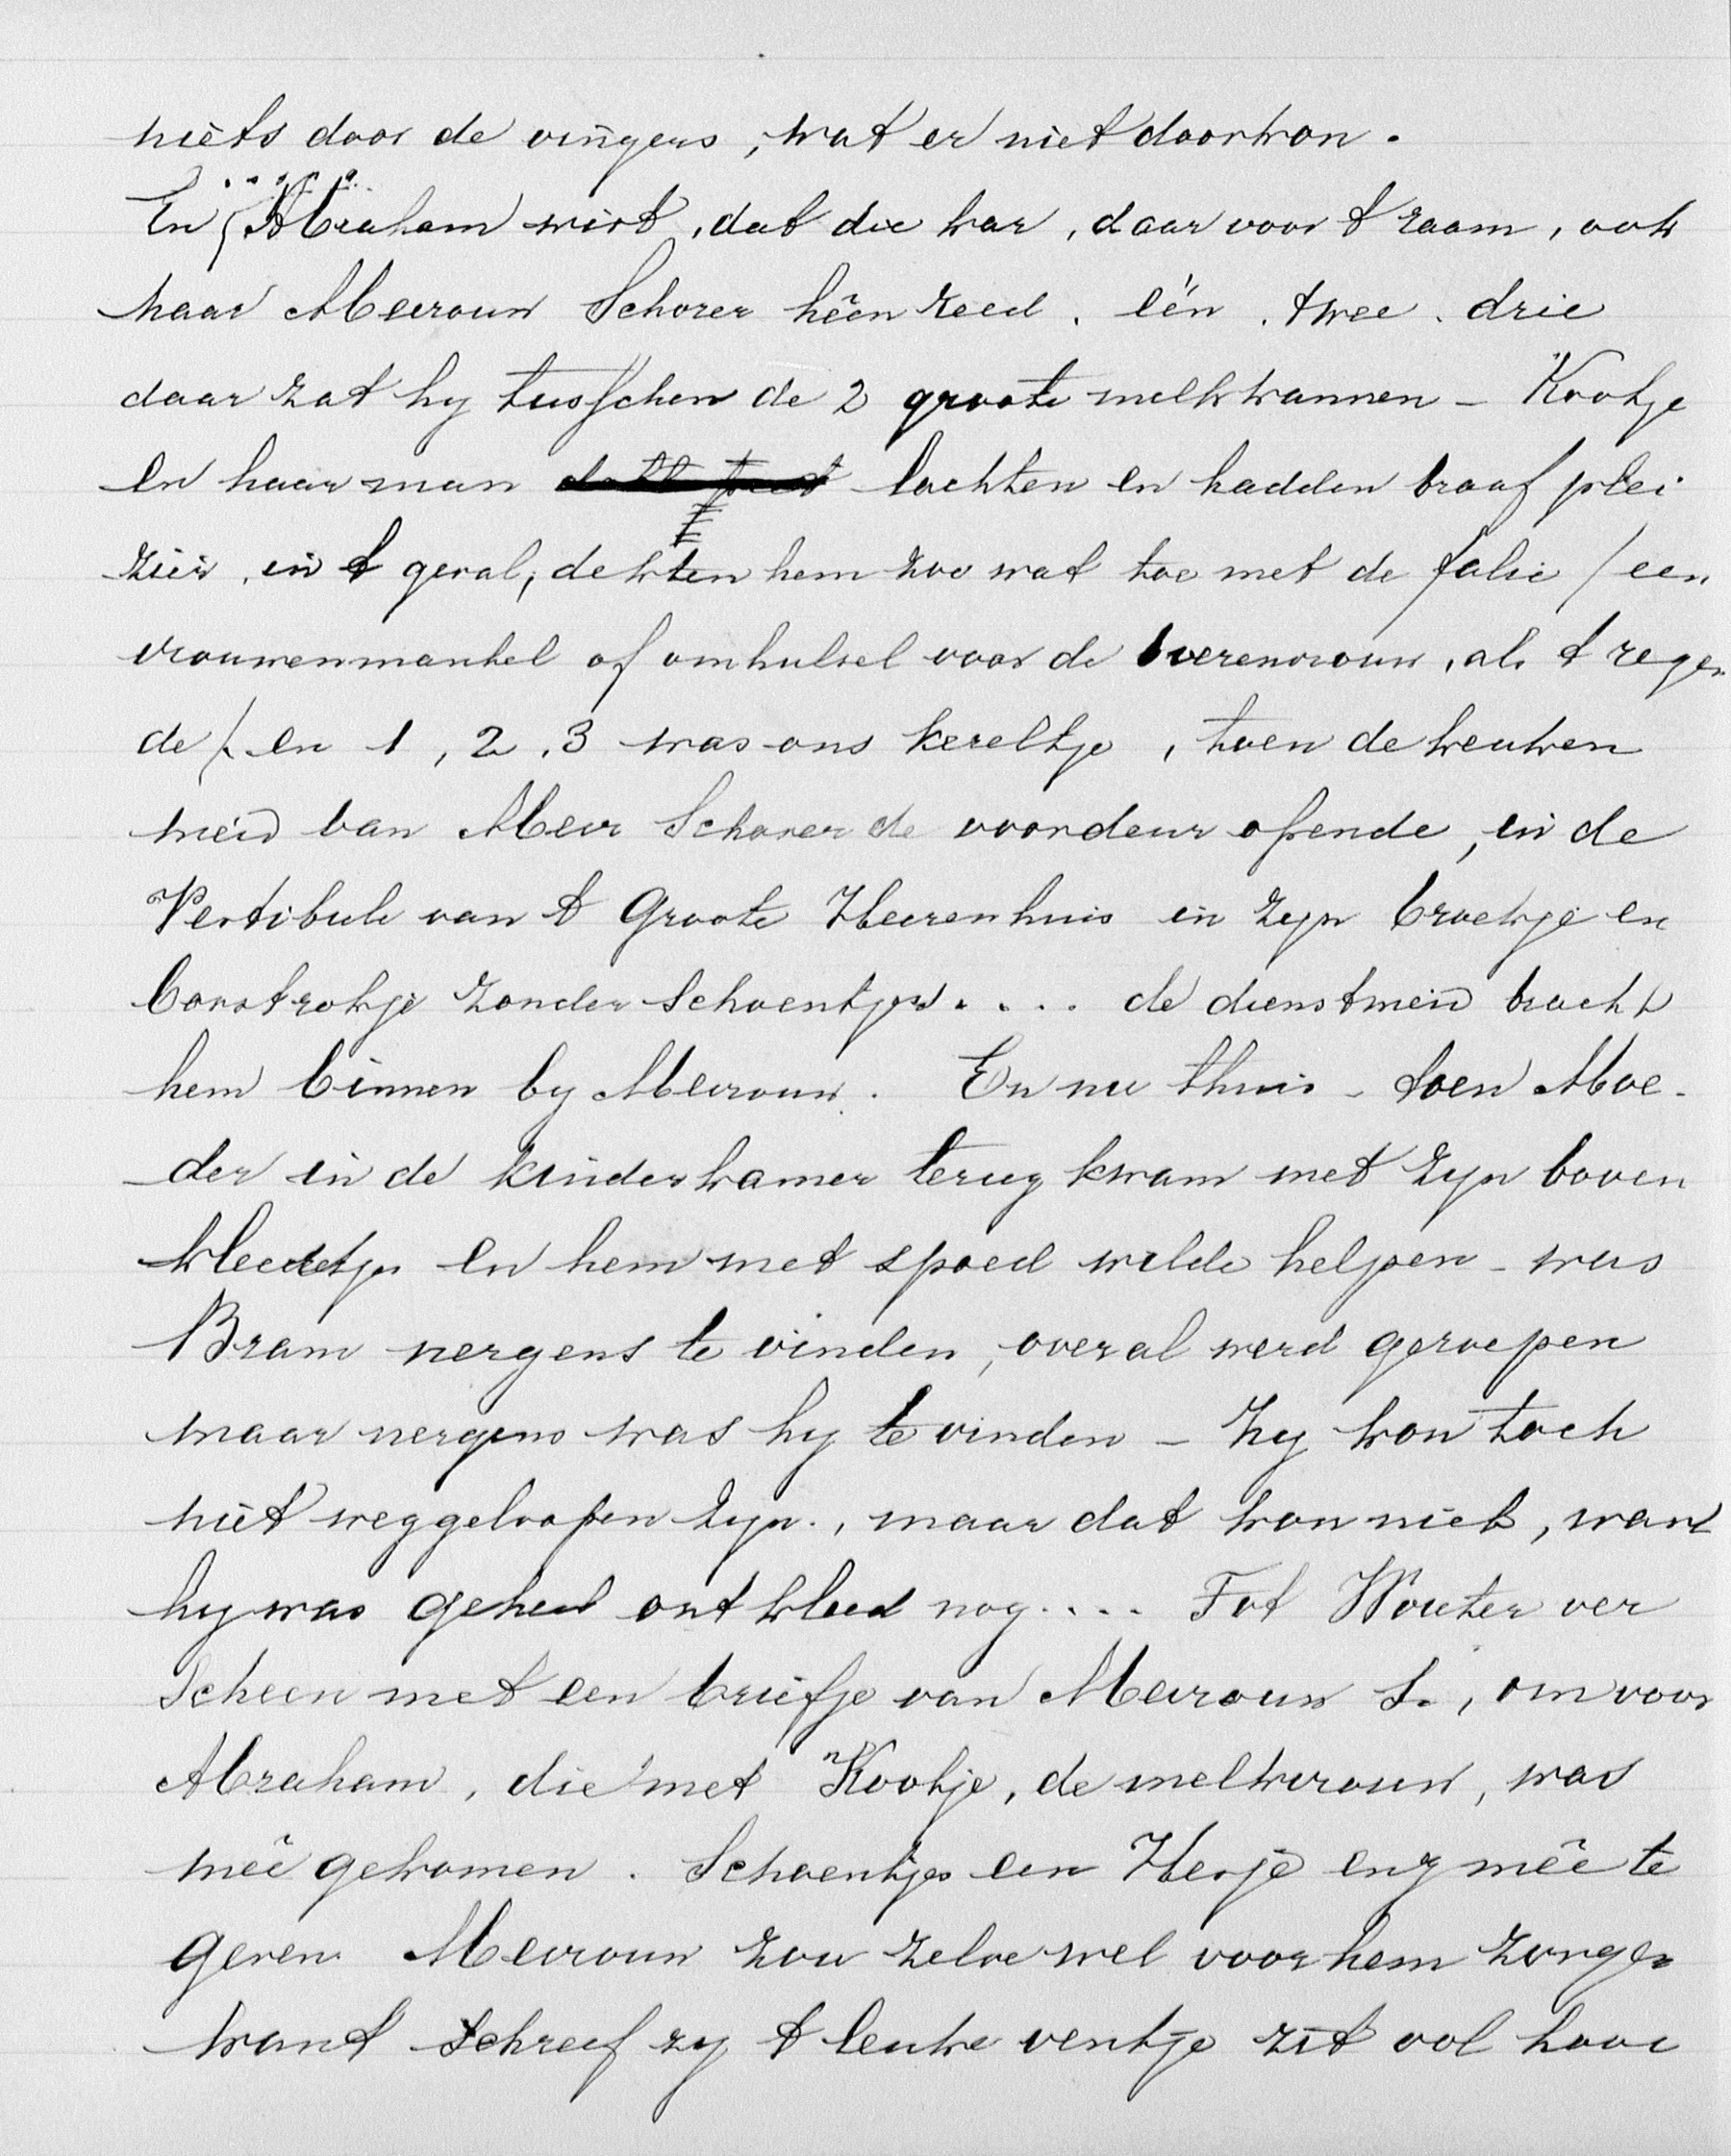 niets door de vingers, wat er niet doorkon.
En Abraham wist, dat die kar, daar voor 't raam, ook
naar Mevrouw Schorer hêen reed. één. twee. drie
daar zat hy tusschen de 2 groote melkkannen - "Kootje
en haar man lachten en hadden braaf plei
zier, in 't geval, dekten hem zoo wat toe met de falie / een
vrouwenmantel of omhulsel voor de boerenvrouw, als 't regen
de / en 1, 2, 3 was ons kereltje, toen de keuken
meid van Mevr Schorer de voordeur opende, in de
Vestibule van 't Groote Heerenhuis in zyn broekje en
borstrokje zonder schoentjes.... de dienstmeid bracht
hem binnen by Mevrouw. En nu thuis - toen Moe-
der in de kinderkamer terug kwam met zyn boven
kleedtje en hem met spoed wilde helpen - was
Bram nergens te vinden, overal werd geroepen
maar nergens was hy te vinden - Hy kon toch
niet weggeloopen zyn., maar dat kon niet, want
hy was geheel ontkleed nog.... Tot Wouter ver
scheen met een briefje van Mevrouw S., om voor
Abraham, die met "Kootje, de melkvrouw, was
meê gekomen. Schoentjes een Hesje enz meê te
geven. Mevrouw zou zelve wel voor hem zorgen
want schreef zy 't leuke ventje zit vol hooi